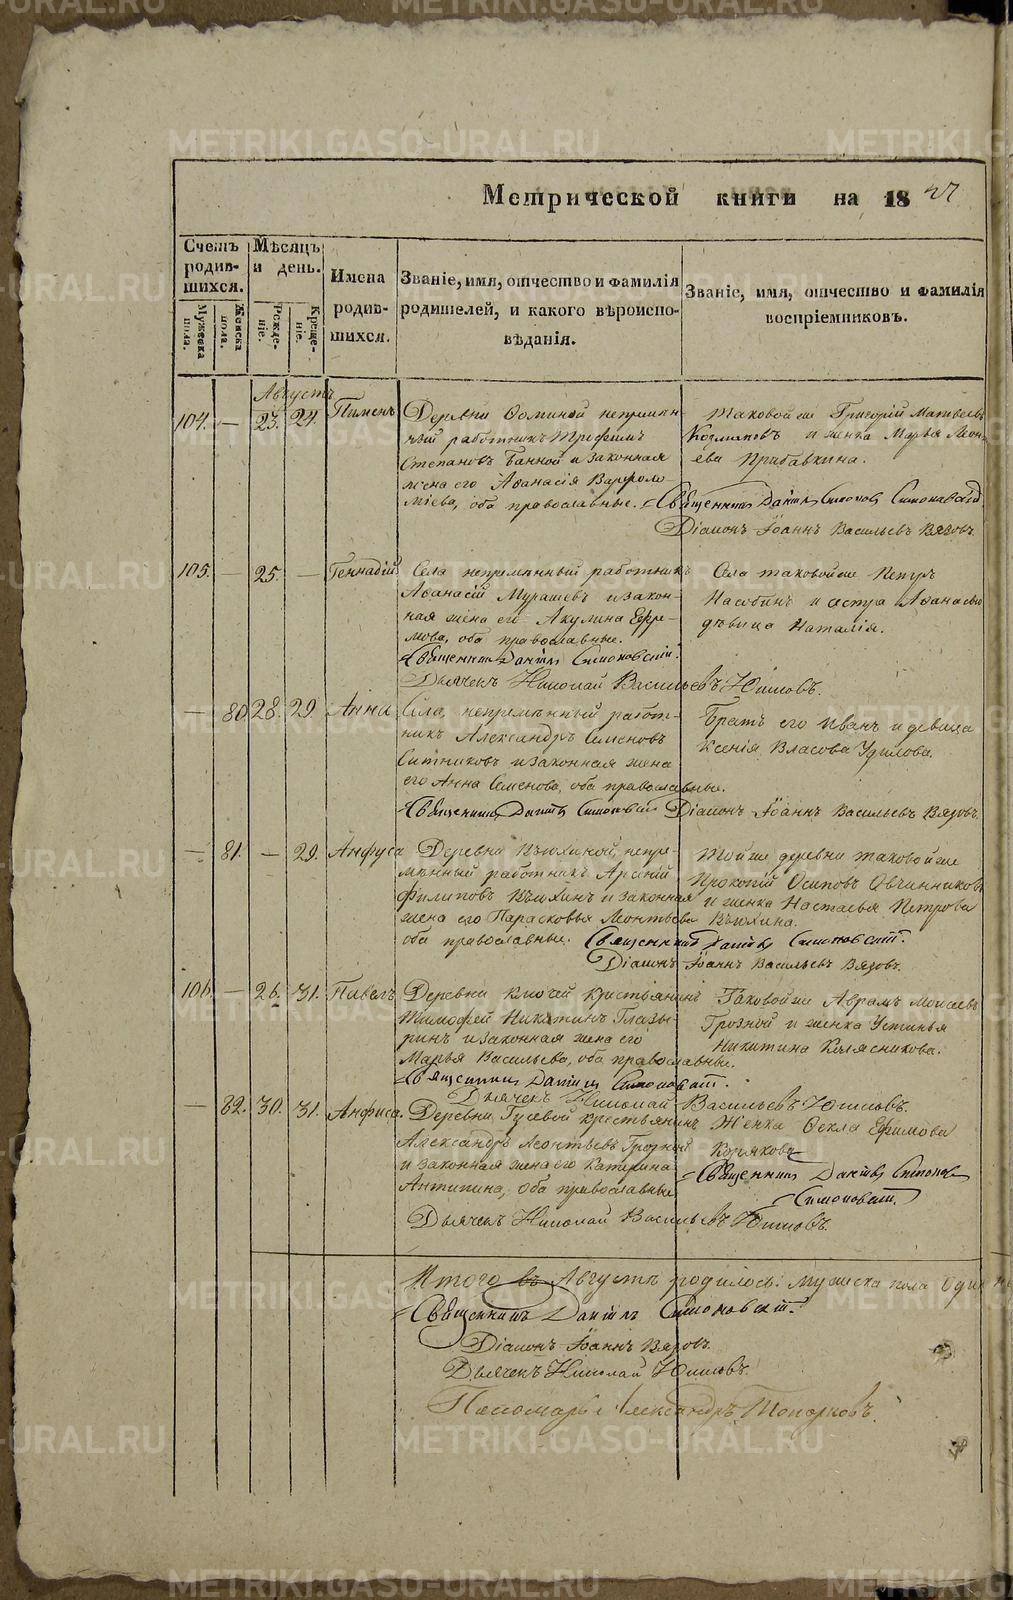 METRIKI.GASO-URAL.RU
Метрической книги на 18
Счетъ родив-шихся.
Мѣсяцъ и день.
Имена родив-шихся.
Званіе, имя, отчество и фамилія родителей, и какого вѣроиспо-вѣданія.
Званіе, имя, отчество и фамилія воспріемниковъ.
Мужеска пола.
Женска пола.
Рожде-ніе.
Креще-ніе.
Августъ
104. — 23. 24. Пименъ
Деревни непремѣн-
ный работникъ Трофимъ
Степановъ Банной и законная
жена его Аѳанасія Варѳоло
міева, оба православные.
Таковой же Григорій Матвѣевъ
и женка Марья Леон-
ева Прибавкина.
Священникъ Даніилъ Симоновскій
Діаконъ Іоаннъ Васильевъ Вязовъ.
105. — 25. — Геннадій
Села непремѣнный работникъ
Аѳанасій Мурашевъ и закон-
ная жена его Акулина Ефре-
мова, оба православные.
Села таковой же Петръ
и сестра Аѳанасью
дѣвица Наталія.
Священникъ Даніилъ Симоновскій.
Дьячекъ Николай Васильевъ
— 80 28. 29. Анна
Села, непремѣнный работ-
никъ Александръ Семеновъ
Ситниковъ и законная жена
его Анна Семенова, оба православные.
Братъ его Иванъ и девица
Ксенія Власова Удилова.
Священникъ Даніилъ Симоновскій Діаконъ Іоаннъ Васильевъ Вязовъ.
— 81. — 29. Анфуса
Деревни непре-
мѣнный работникъ Арсеній
Филиповъ и законная
жена его Парасковья Леонтьева
оба православные.
Той же деревни таковой же
Прокопій Осиповъ Овчинниковъ
и женка Настасья Петрова
Священникъ Даніилъ Симоновскій.
Діаконъ Іоаннъ Васильевъ Вязовъ.
106. — 26. 31. Павелъ
Деревни Ключей крестьянинъ
Тимофей Никитинъ Глазы-
ринъ и законная жена его
Марья Васильева, оба православные.
Таковой же Аврамъ Моисеевъ
Грозной и женка Устинья
Никитина Колясникова.
Священникъ Даніилъ Симоновскій.
Дьячекъ Николай Васильевъ
— 82. 30. 31. Анфиса.
Деревни Гусевой крестьянинъ
Александръ Леонтьевъ Грозной
и законная жена его Катерина
Антипина, оба православные
Женка Ѳекла Ефимова
Корякова
Священникъ Даніилъ
Симоновскій.
Дьячекъ Николай Васильевъ
Итого въ Августѣ родилось: мужеска пола
Священникъ Даніилъ Симоновскій.
Діаконъ Іоаннъ Вязовъ.
Дьячекъ Николай
Пономарь Александръ Топорковъ.